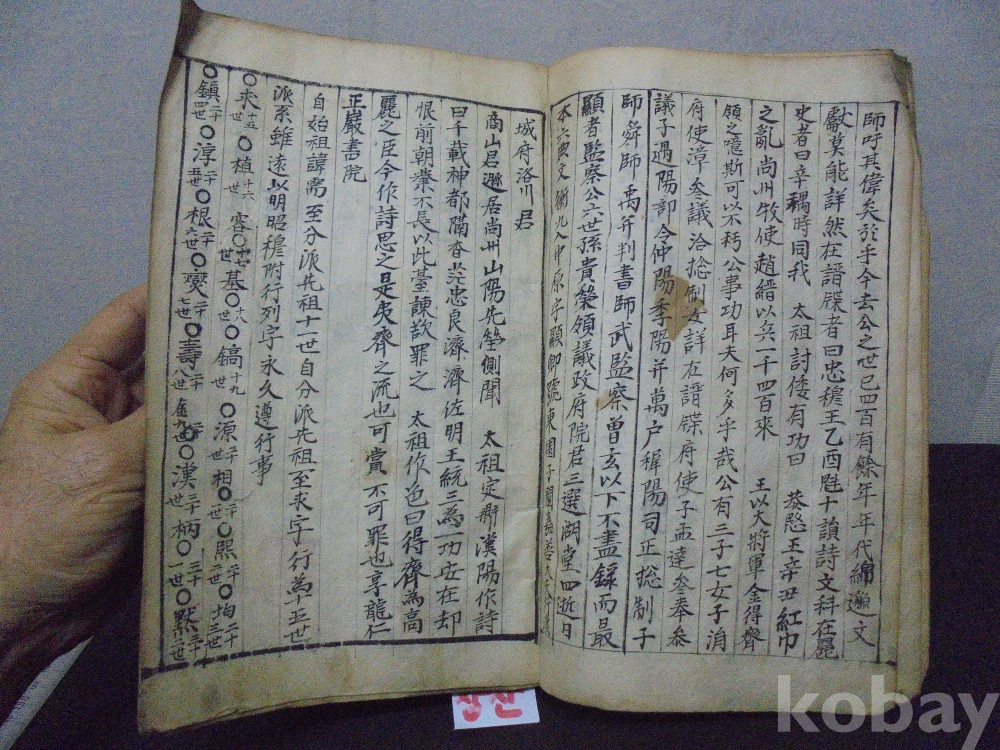 師吁其偉矣於乎今去公之世已四百有餘年年代綿邈文
獻莫能詳然在譜牒者曰忠穆王乙酉魁十韻詩文科在麗
史者曰辛禑時同我 太祖討倭有功曰 恭愍王辛丑紅巾
之亂尚州牧使趙縉以兵一千四百來 王以大將軍金得齊
領之噫斯可以不朽公事功耳夫何多乎哉公有三子七女子消
府使漳叅議洽捴制女詳在譜牒府使子孟達叅奉叅
議子遇陽部令仲陽季陽并萬户稺陽司正捴制子
師舜師禹并判書師武監察曾玄以下不盡錄而最
顯者監察公六世孫貴榮領議政府院君三選湖堂四逝日
本六典文衡九入中原字顯卿號東園子
城府洛川君
商山君遯居尚州山陽先塋側聞 太祖定鼎漢陽作詩
曰千載神都隔杳茫忠良濟濟佐明王統三為一功安在却
恨前朝業不長以此臺諫欲罪之 太祖作色曰得齊為高
麗之臣今作詩思之是夷齊之流也可賞不可罪也享龍仁
正巖書院
自始祖諱需至分派先祖十一世自分派先祖至求字行為十五世
派系雖遠以明昭穆附行列字永久遵行事
○求十五世○植十六世 容十七世○基十八世○鎬十九世○源二十世○相○熙○均二十三世
○鎮二十四世○淳二十五世○根二十六世○燮二十七世○壽二十八世○金九世○漢三十世○柄三十一世○默三十二世
장전
kobay